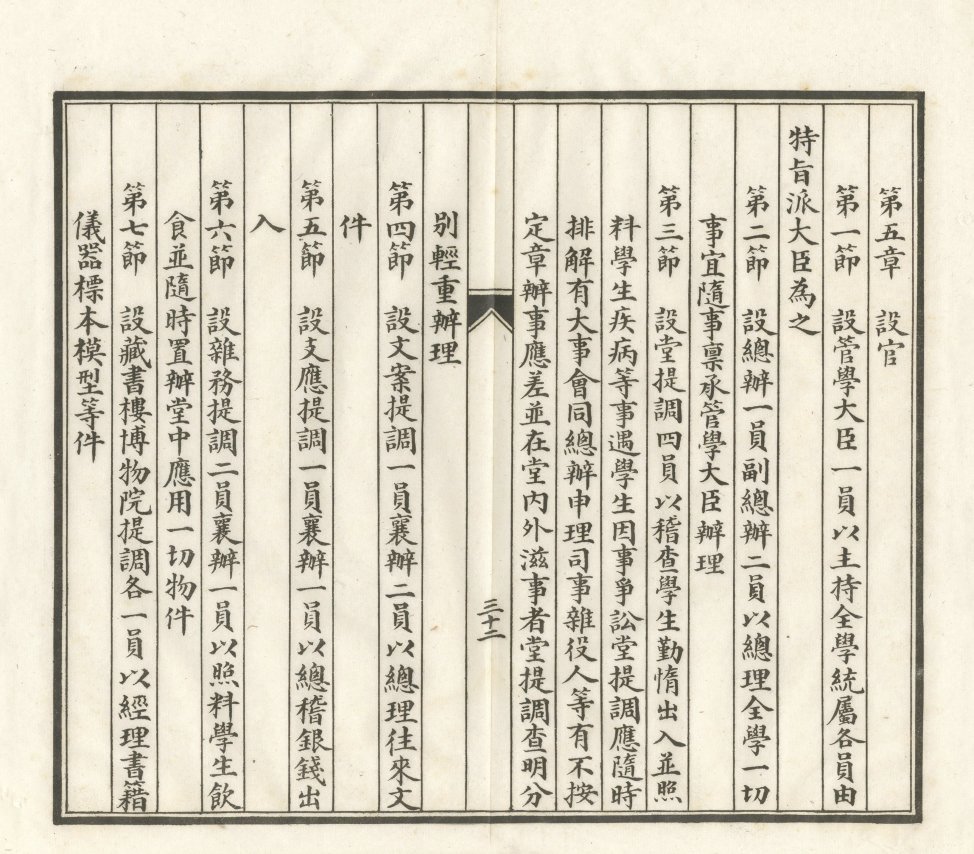 第五章　設官
第一節　設管學大臣一員以主持全學統屬各員由
特旨派大臣為之
第二節　設總辦一員副總辦二員以總理全學一切
事宜隨事稟承管學大臣辦理
第三節　設堂提調四員以稽查學生勤惰出入並照
料學生疾病等事遇學生因事爭訟堂提調應隨時
排解有大事會同總辦申理司事雜役人等有不按
定章辦事應差並在堂內外滋事者堂提調查明分
三十二
別輕重辦理
第四節　設文案提調一員襄辦二員以總理往來文
件
第五節　設支應提調一員襄辦一員以總稽銀錢出
入
第六節　設雜務提調二員襄辦一員以照料學生飲
食並隨時置辦堂中應用一切物件
第七節　設藏書樓博物院提調各一員以經理書籍
儀器標本模型等件